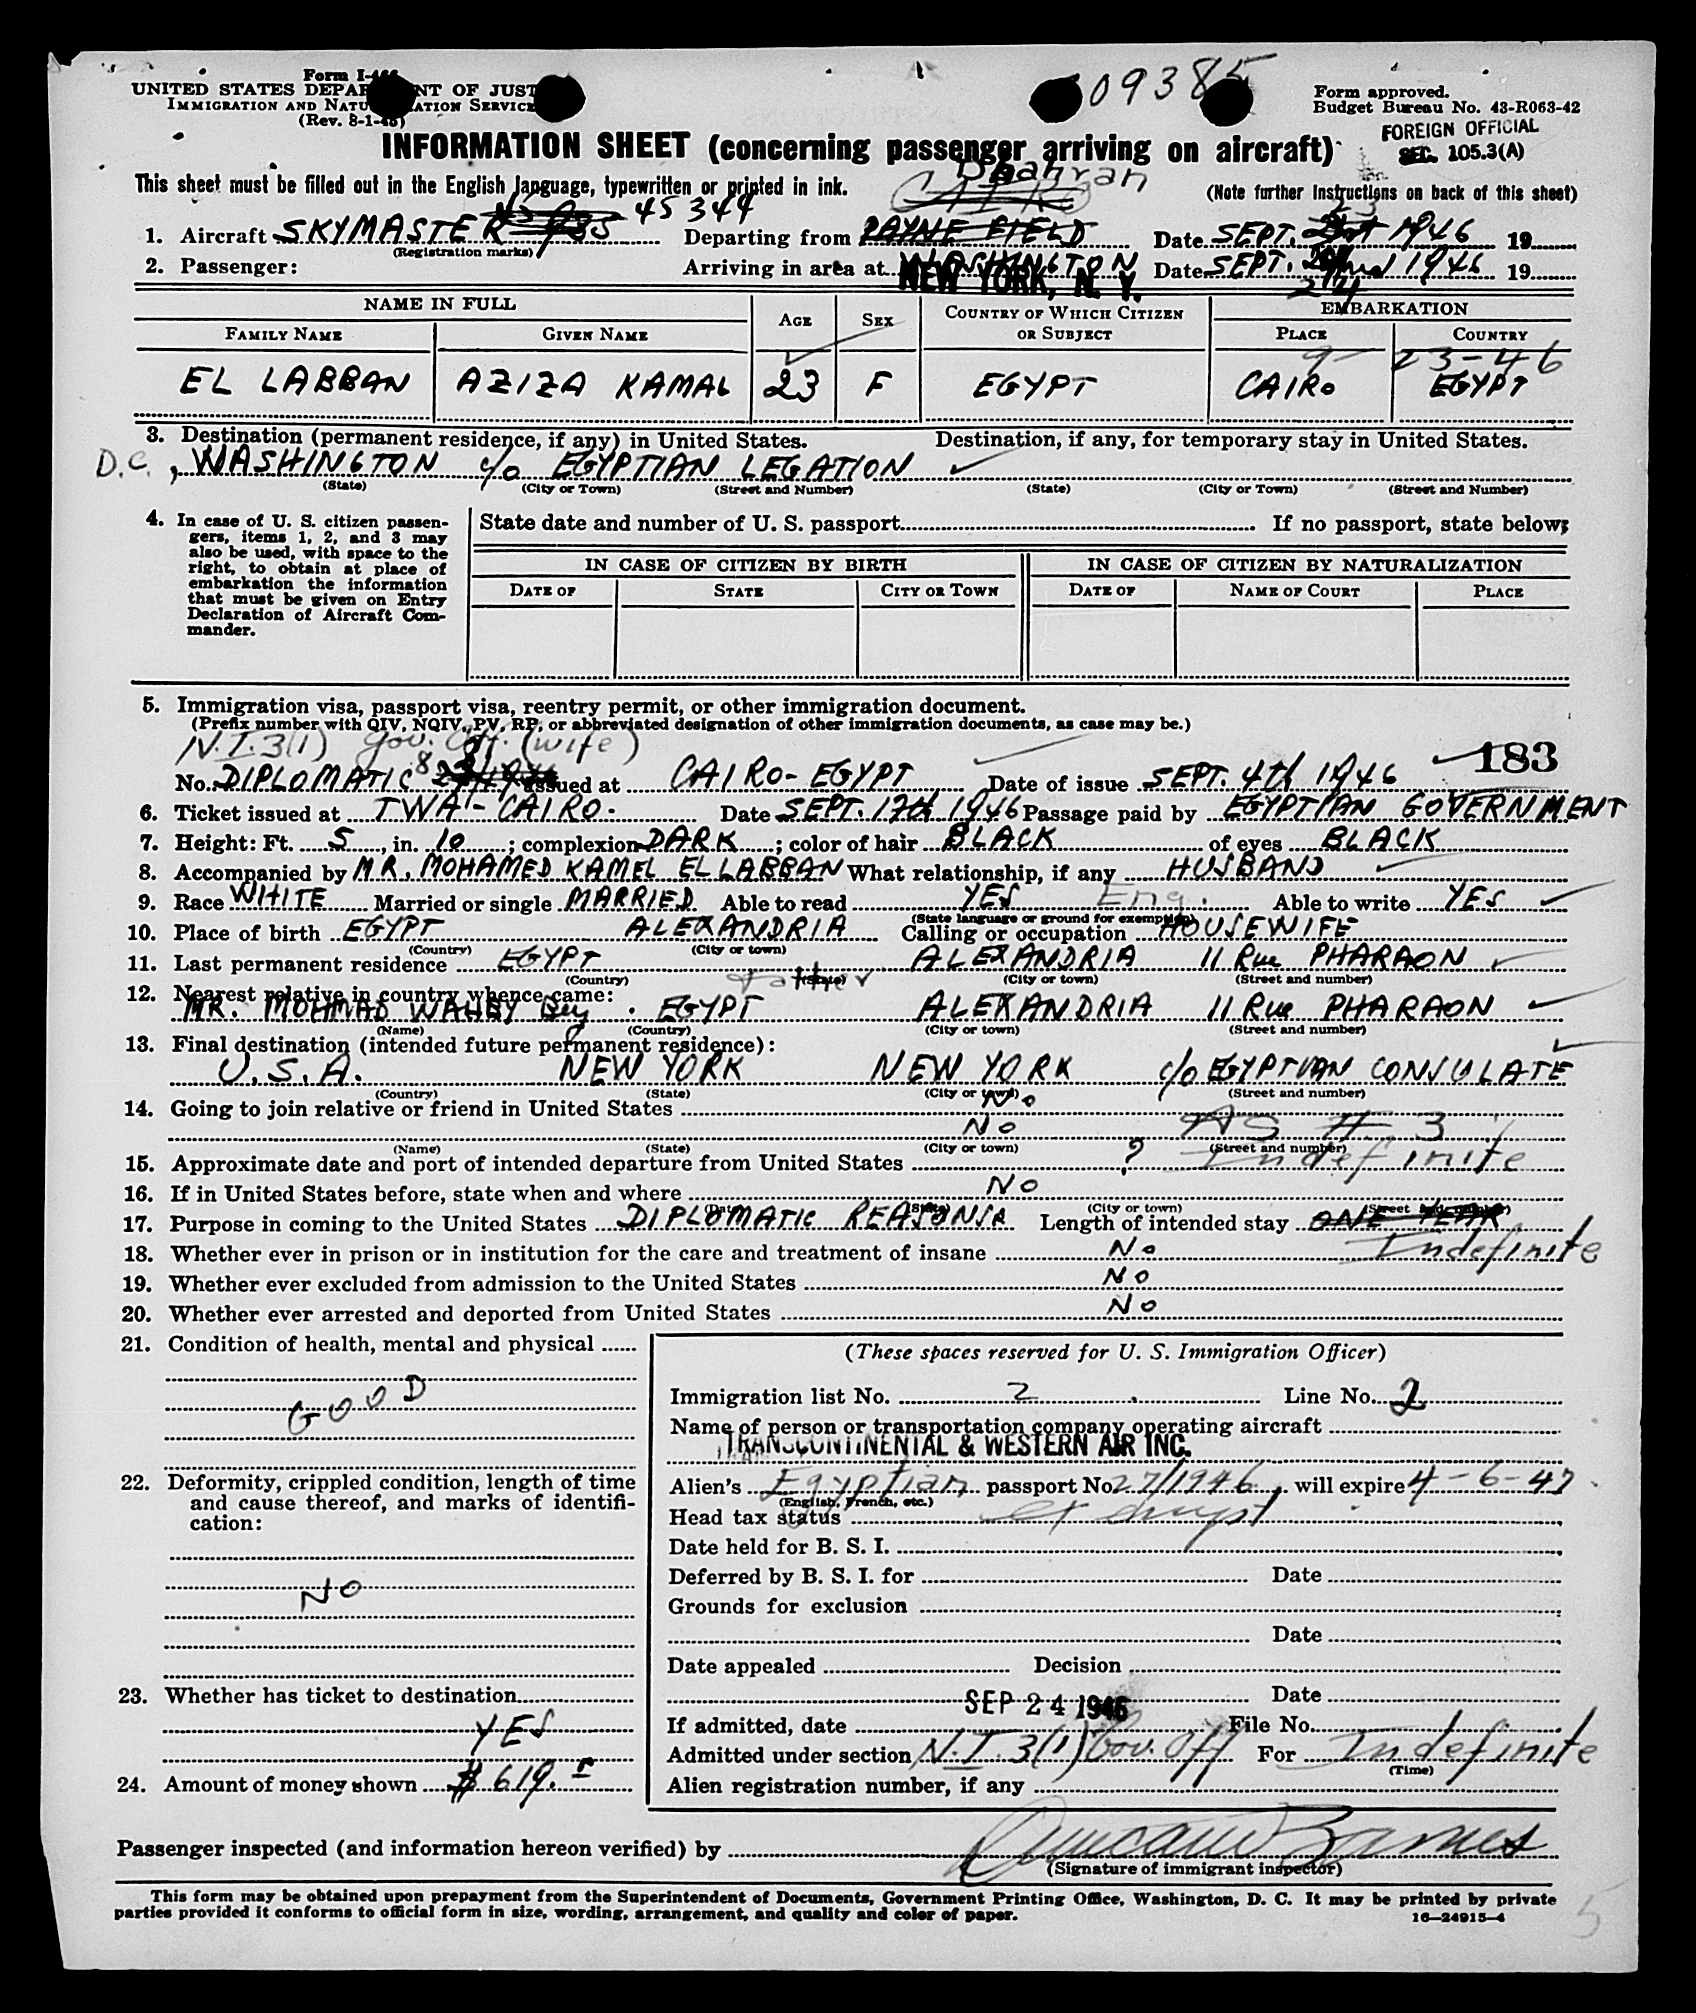 Form I-466
UNITED STATES DEPARTMENT OF JUSTICE
IMMIGRATION AND NATURALIZATION SERVICE
(Rev. 8-1-45)
09385
Form approved.
Budget Bureau No. 43-R063-42
FOREIGN OFFICIAL
SEC. 105.3(A)
INFORMATION SHEET (concerning passenger arriving on aircraft)
This sheet must be filled out in the English language, typewritten or printed in ink.
(Note further instructions on back of this sheet)
Dhahran
CAIRO
1. Aircraft SKYMASTER 45344 Departing from PAYNE FIELD Date SEPT. 23 1946 19
(Registration marks)
2. Passenger: Arriving in area at WASHINGTON NEW YORK, N. Y. Date SEPT. 24 1946 19
NAME IN FULL AGE SEX COUNTRY OF WHICH CITIZEN OR SUBJECT EMBARKATION
FAMILY NAME GIVEN NAME PLACE COUNTRY
9-23-46
EL LABBAN AZIZA KAMAL 23 F EGYPT CAIRO EGYPT
3. Destination (permanent residence, if any) in United States. Destination, if any, for temporary stay in United States.
D.C., WASHINGTON c/o EGYPTIAN LEGATION
(State) (City or Town) (Street and Number) (State) (City or Town) (Street and Number)
4. In case of U. S. citizen passengers, items 1, 2, and 3 may also be used, with space to the right, to obtain at place of embarkation the information that must be given on Entry Declaration of Aircraft Commander.
State date and number of U. S. passport If no passport, state below:
IN CASE OF CITIZEN BY BIRTH IN CASE OF CITIZEN BY NATURALIZATION
DATE OF STATE CITY OR TOWN DATE OF NAME OF COURT PLACE
5. Immigration visa, passport visa, reentry permit, or other immigration document.
(Prefix number with QIV, NQIV, PV, RP, or abbreviated designation of other immigration documents, as case may be.)
N.I.3(1) Gov. Off. (wife)
183
No. DIPLOMATIC 8 Issued at CAIRO-EGYPT Date of issue SEPT. 4th 1946
6. Ticket issued at TWA-CAIRO. Date SEPT. 17th 1946 Passage paid by EGYPTIAN GOVERNMENT
7. Height: Ft. 5, in. 10; complexion DARK; color of hair BLACK of eyes BLACK
8. Accompanied by MR. MOHAMED KAMEL EL LABBAN What relationship, if any HUSBAND
9. Race WHITE Married or single MARRIED Able to read YES Eng. Able to write YES
(State language or ground for exemption)
10. Place of birth EGYPT ALEXANDRIA Calling or occupation HOUSEWIFE
(Country) (City or town)
11. Last permanent residence EGYPT ALEXANDRIA 11 Rue PHARAON
(Country) (State) (City or town) (Street and number)
father
12. Nearest relative in country whence came:
MR. MOHMAD WAHBY Bey. EGYPT ALEXANDRIA 11 Rue PHARAON
(Name) (Country) (City or town) (Street and number)
13. Final destination (intended future permanent residence):
U.S.A. NEW YORK NEW YORK c/o EGYPTIAN CONSULATE
(Country) (State) (City or town) (Street and number)
14. Going to join relative or friend in United States No
No AS # 3
(Name) (State) (City or town) (Street and number)
15. Approximate date and port of intended departure from United States ? Indefinite
16. If in United States before, state when and where No
(Date) (State) (City or town) (Street and number)
17. Purpose in coming to the United States DIPLOMATIC Length of intended stay ONE YEAR
Indefinite
18. Whether ever in prison or in institution for the care and treatment of insane No
19. Whether ever excluded from admission to the United States No
20. Whether ever arrested and deported from United States No
21. Condition of health, mental and physical
GOOD
22. Deformity, crippled condition, length of time and cause thereof, and marks of identification:
NO
23. Whether has ticket to destination
YES
24. Amount of money shown $ 619.
(These spaces reserved for U. S. Immigration Officer)
Immigration list No. 2 Line No. 2
Name of person or transportation company operating aircraft
TRANSCONTINENTAL & WESTERN AIR INC.
Alien's Egyptian passport No. 27/1946, will expire 4-6-47
(English, French, etc.)
Head tax status exempt
Date held for B. S. I.
Deferred by B. S. I. for Date
Grounds for exclusion
Date
Date appealed Decision
Date
SEP 24 1946
If admitted, date File No.
Admitted under section N.I. 3(1) Gov. Off For Indefinite
(Time)
Alien registration number, if any
Passenger inspected (and information hereon verified) by
(Signature of immigrant inspector)
This form may be obtained upon prepayment from the Superintendent of Documents, Government Printing Office, Washington, D. C. It may be printed by private
parties provided it conforms to official form in size, wording, arrangement, and quality and color of paper.
16—24915-4
5